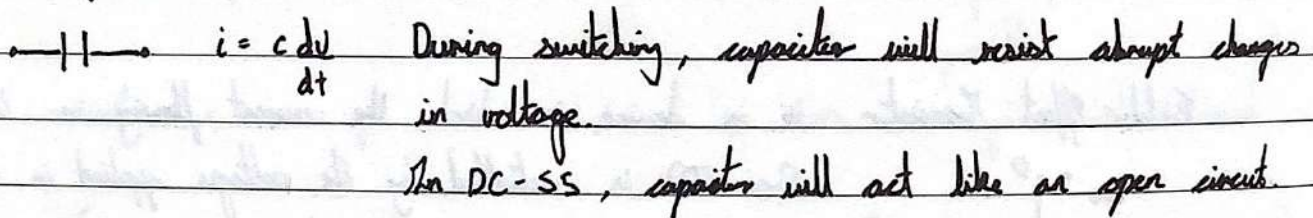 i = c dv/dt During switching, capacitor will resist abrupt changes
in voltage.
In DC-SS, capacitor will act like an open circuit.